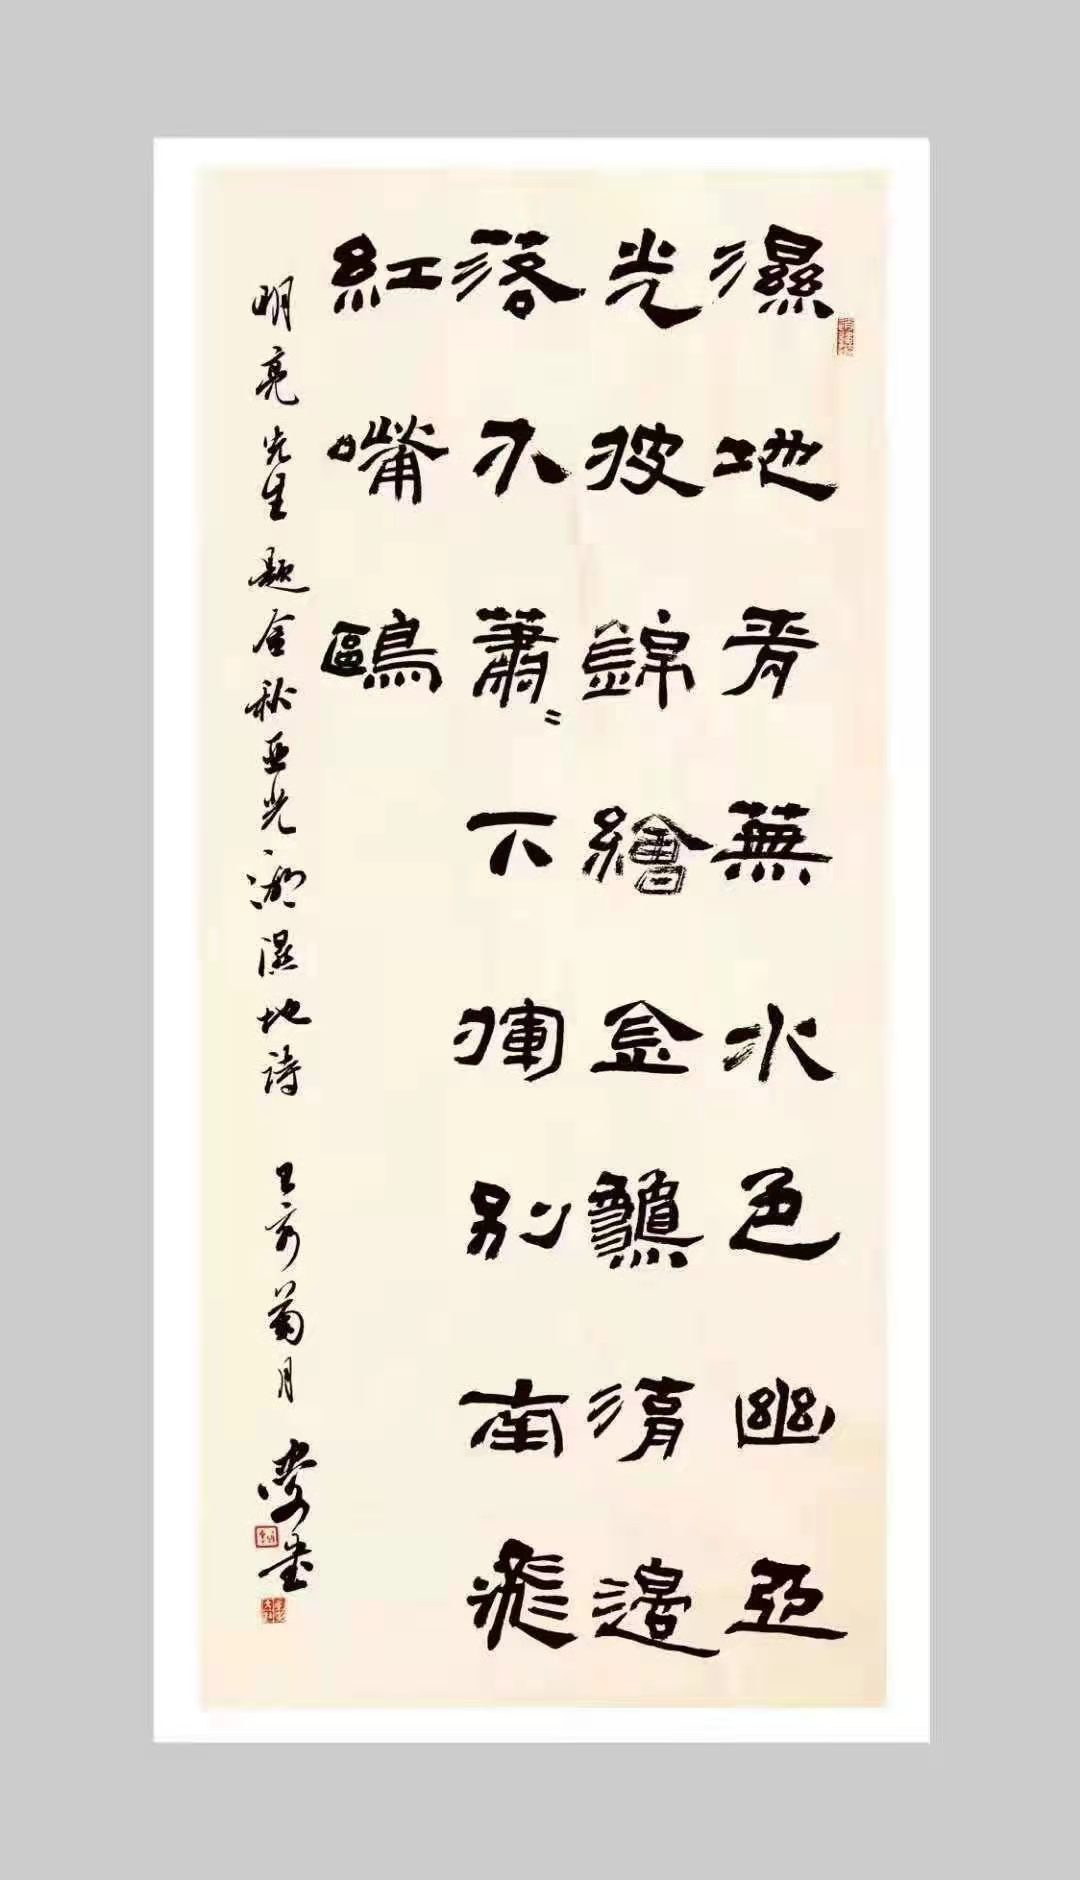 濕地青蕪水色幽亞
光披錦繪金龝湖邊
落木蕭〻下揮別南飛
紅嘴鷗
明亮先生題金秋亞光湖濕地詩 己亥菊月 書